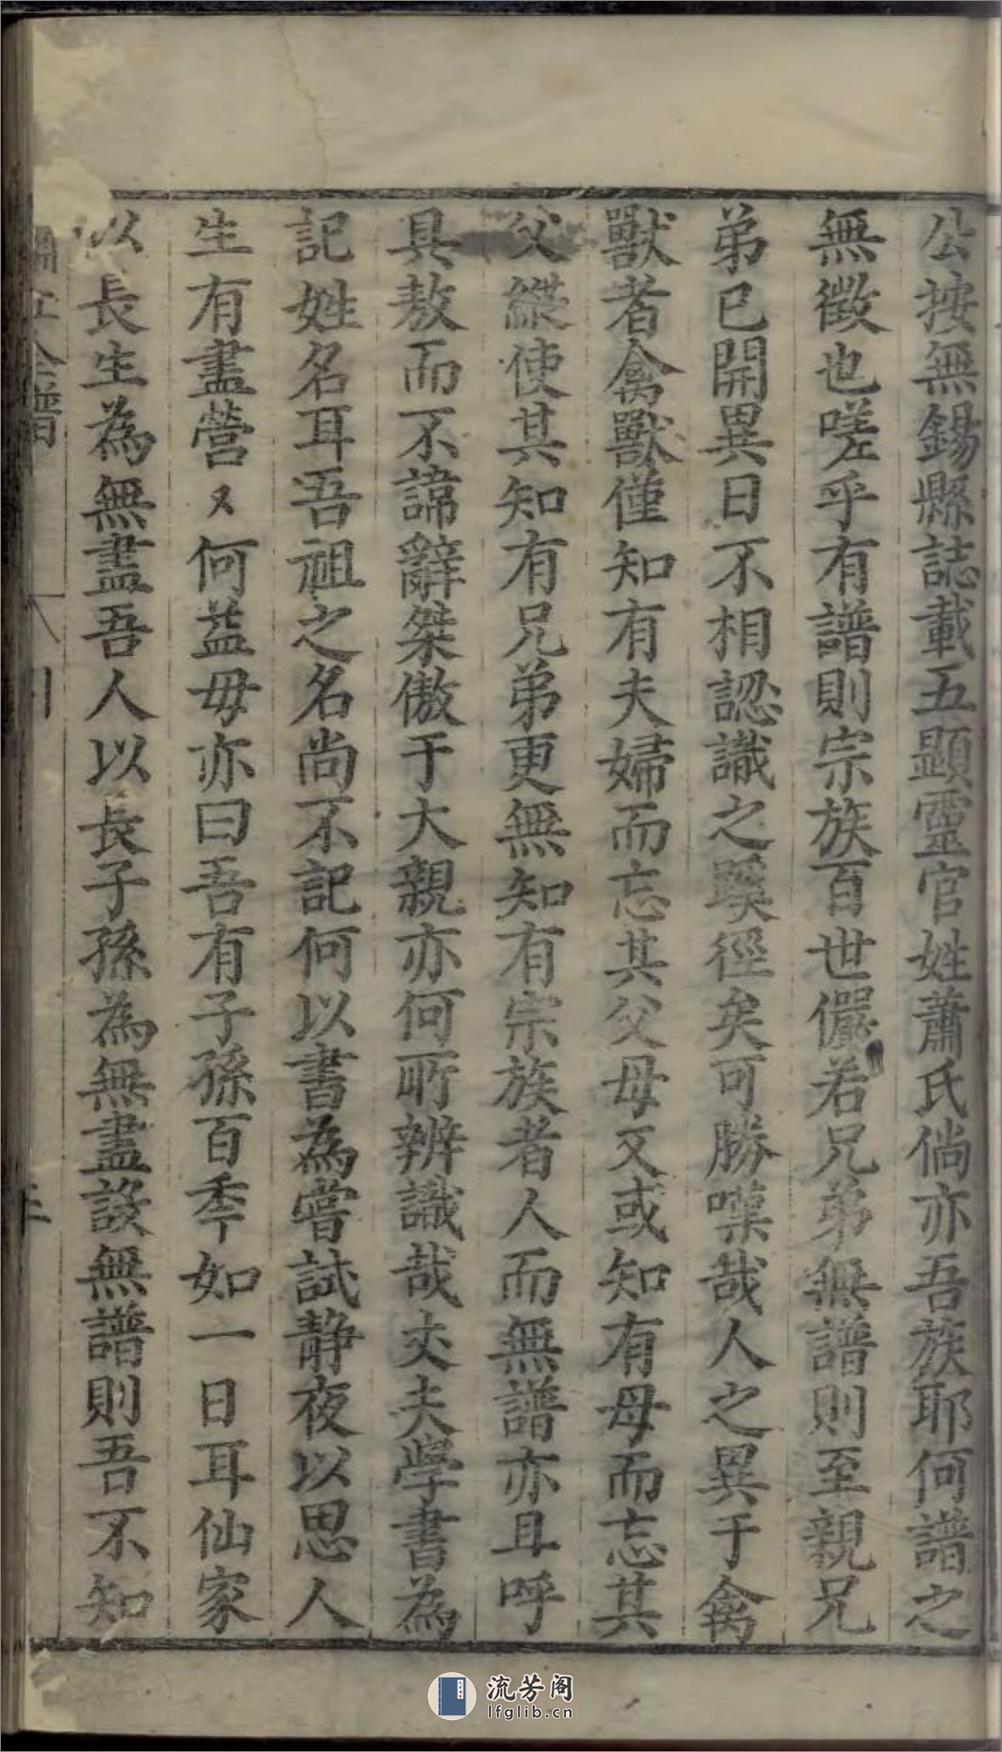 公按無錫縣誌載五顯靈官姓蕭氏倘亦吾族耶何譜之
無徵也嗟乎有譜則宗族百世儼若兄弟無譜則至親兄
弟已開異日不相認識之蹊徑矣可勝嘆哉人之異于禽
獸者禽獸僅知有夫婦而忘其父母又或知有母而忘其
父縱使其知有兄弟更無知有宗族者人而無譜亦且呼
具敖而不諱辭桀傲于大親亦何所辨識哉丈夫學書為
記姓名耳吾祖之名尚不記何以書為嘗試静夜以思人
生有盡營〻何益毋亦曰吾有子孫百季如一日耳仙家
以長生為無盡吾人以長子孫為無盡設無譜則吾不知
流芳阁
lfglib.cn